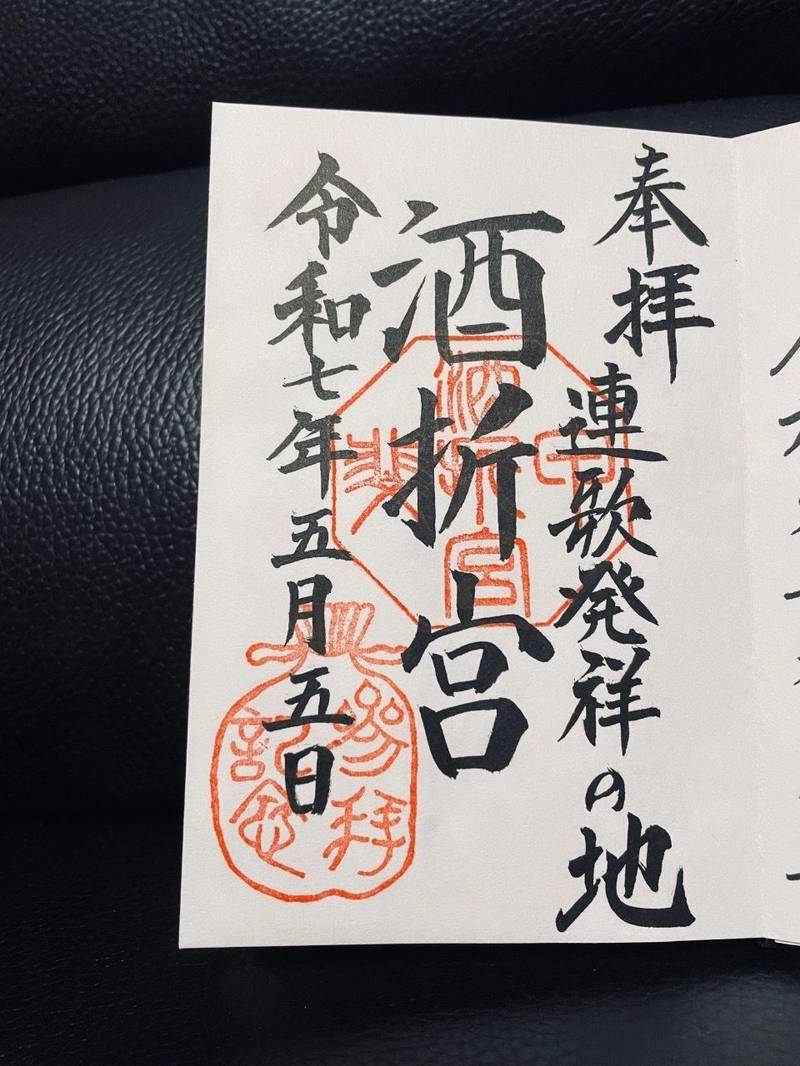 奉拝
連歌発祥の地
酒折宮
令和七年五月五日
酒折宮
參拜
記念